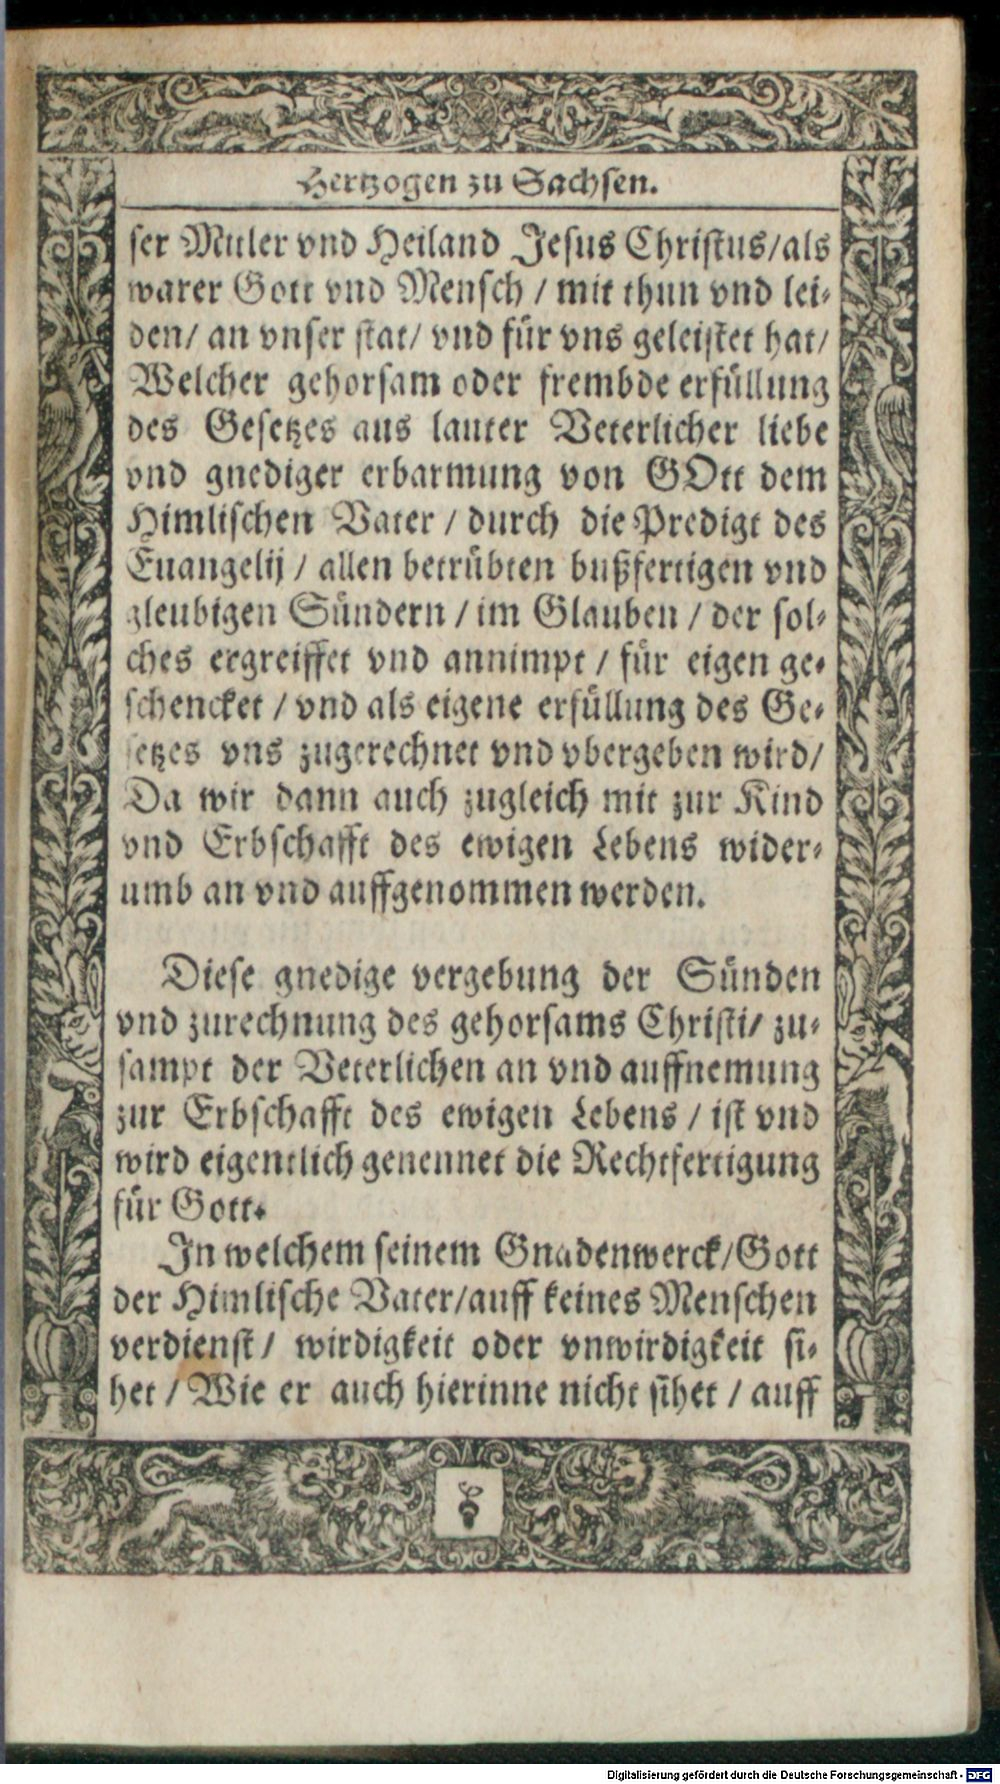 Hertzogen zu Sachsen.
ser Mitler vnd Heiland Jesus Christus/als
warer Gott vnd Mensch / mit thun vnd lei-
den/ an vnser stat/ vnd für vns geleistet hat/
Welcher gehorsam oder frembde erfüllung
des Gesetzes aus lauter Veterlicher liebe
vnd gnediger erbarmung von GOtt dem
Himlischen Vater / durch die Predigt des
Euangelij / allen betrübten bußfertigen vnd
gleubigen Sündern / im Glauben / der sol-
ches ergreiffet vnd annimpt / für eigen ge-
schencket / vnd als eigene erfüllung des Ge-
setzes vns zugerechnet vnd vbergeben wird/
Da wir dann auch zugleich mit zur Kind
vnd Erbschafft des ewigen Lebens wider-
umb an vnd auffgenommen werden.
Diese gnedige vergebung der Sünden
vnd zurechnung des gehorsams Christi/ zu-
sampt der Veterlichen an vnd auffnemung
zur Erbschafft des ewigen Lebens / ist vnd
wird eigentlich genennet die Rechtfertigung
für Gott.
In welchem seinem Gnadenwerck/Gott
der Himlische Vater/auff keines Menschen
verdienst/ wirdigkeit oder vnwirdigkeit si-
het / Wie er auch hierinne nicht sihet / auff
Digitalisierung gefördert durch die Deutsche Forschungsgemeinschaft - DFG